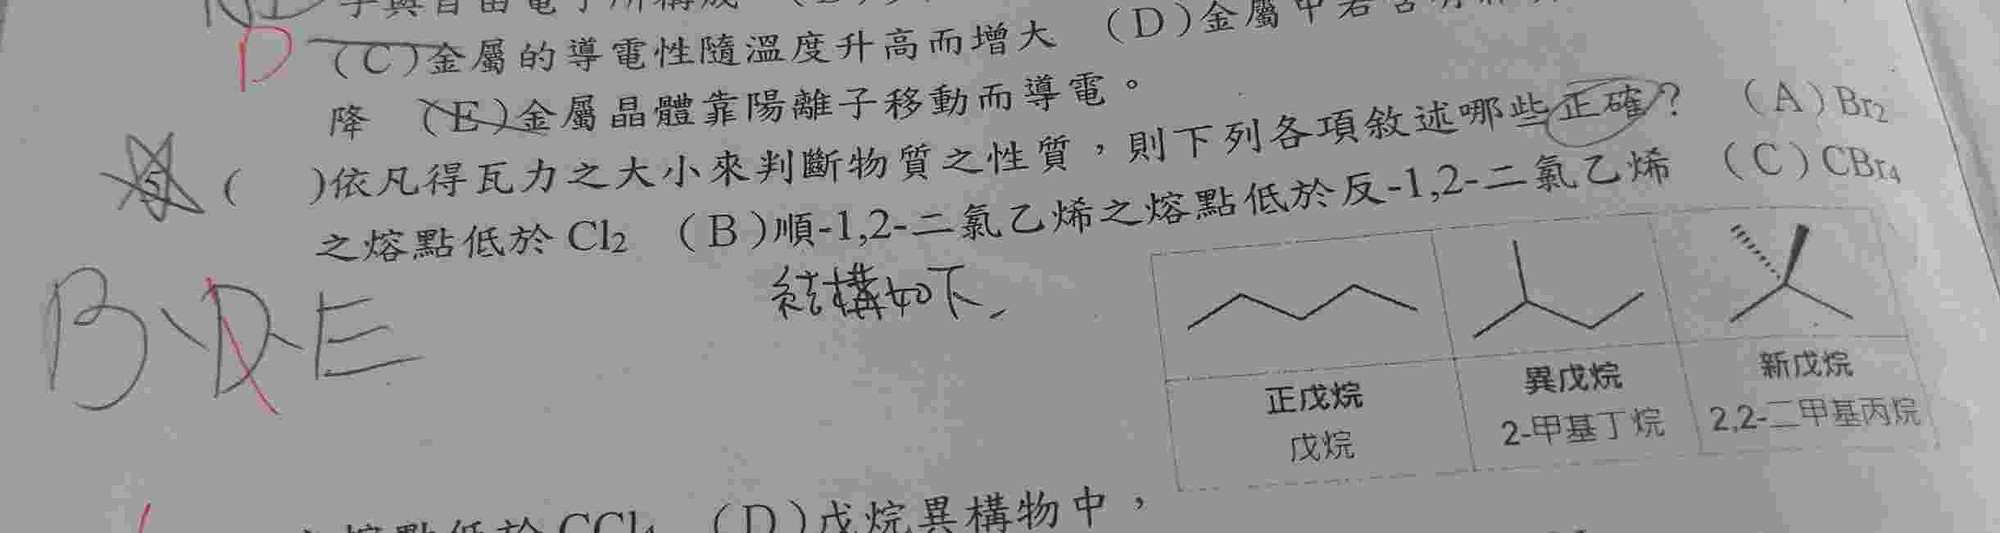 D (C)金屬的導電性隨溫度升高而增大 (D)金屬中若含
降 (E)金屬晶體靠陽離子移動而導電。
5 ( )依凡得瓦力之大小來判斷物質之性質，則下列各項敘述哪些正確? (A)Br2
之熔點低於Cl2 (B)順-1,2-二氯乙烯之熔點低於反-1,2-二氯乙烯 (C)CBr4
結構如下、
B、D、E
正戊烷 異戊烷 新戊烷
戊烷 2-甲基丁烷 2,2-二甲基丙烷
熔點低於CCl4 (D)戊烷異構物中，